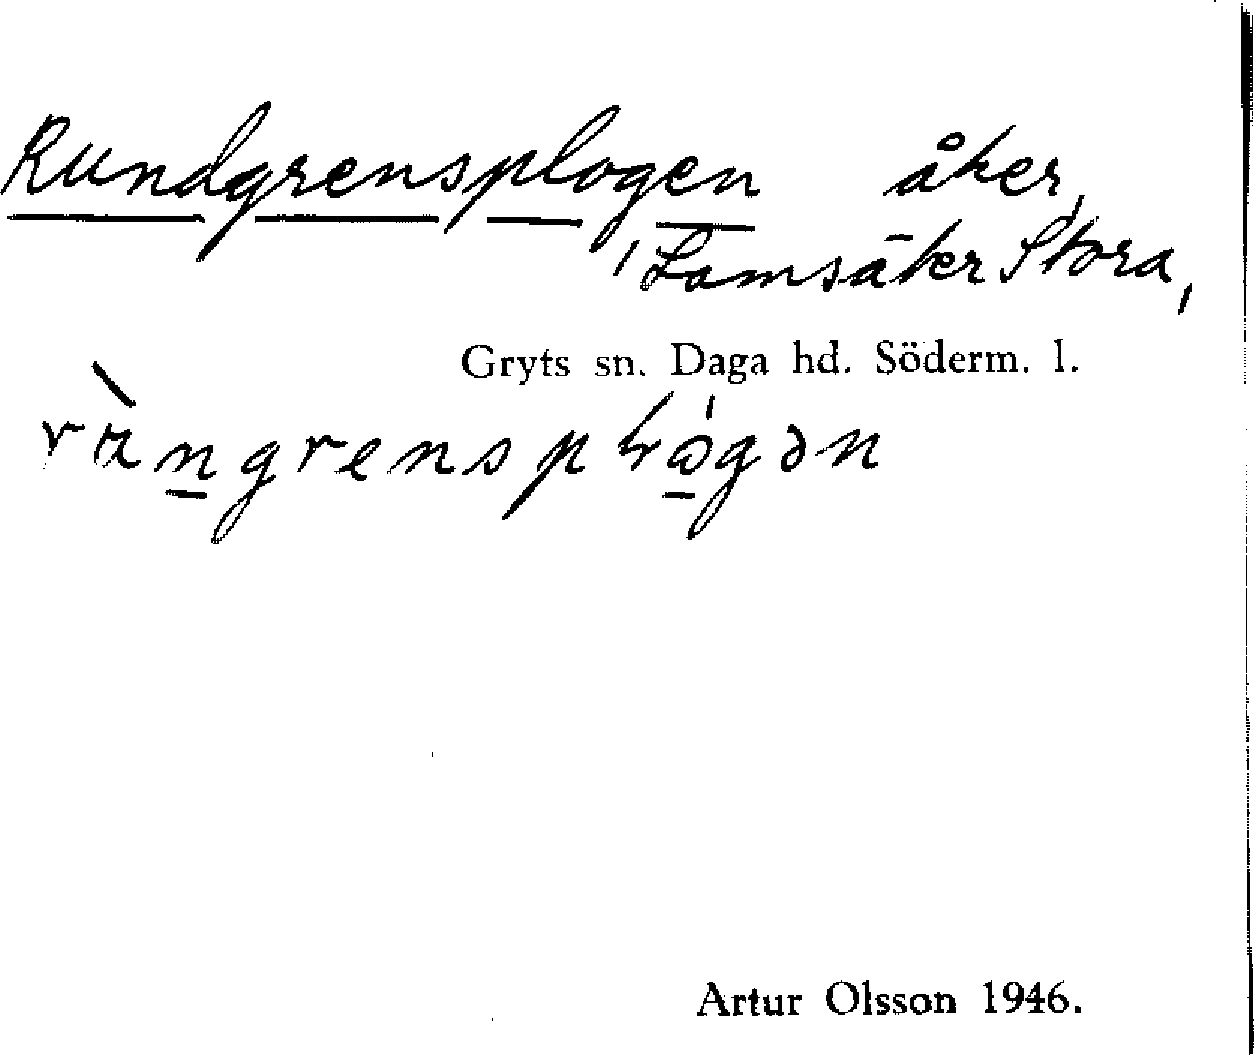 Rundgrensplogen åker,
Lämsäker Stora,
Gryts sn. Daga hd. Söderm. l.
Artur Olsson 1946.